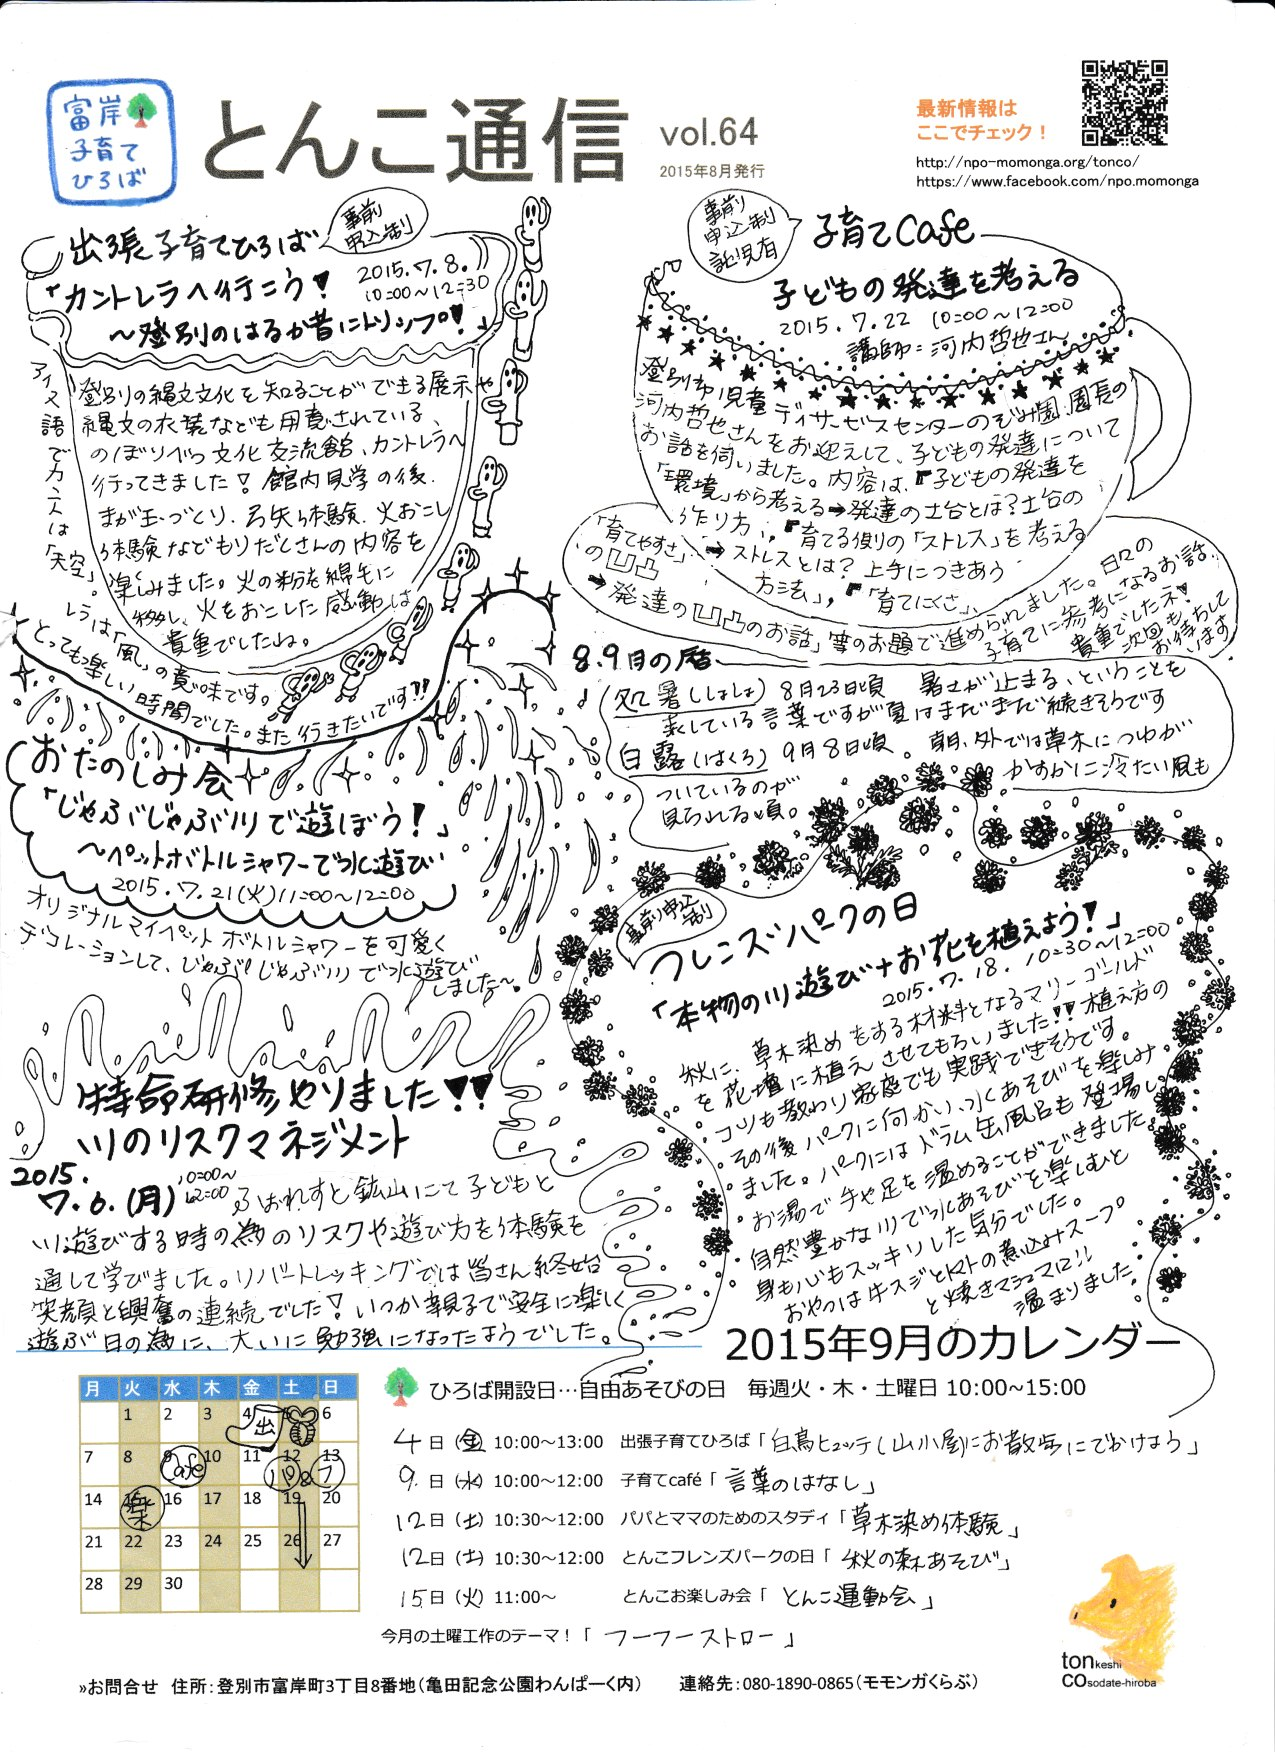 富岸
子育て
ひろば
とんこ通信 vol.64
2015年8月発行
最新情報は
ここでチェック！
http://npo-momonga.org/tonco/
https://www.facebook.com/npo.momonga
事前
申込制
出張子育てひろば
「カントレラへ行こう！
2015.7.8.
10:00～12:30
～登別のはるか昔にトリップ！」
登別の縄文文化を知ることができる展示や
縄文の衣装なども用意されている
のぼりべつ文化交流館、カントレラへ
行ってきました！館内見学の後、
まが玉づくり、弓矢体験、火おこし
体験などもりだくさんの内容を
楽しみました。火の粉を綿毛に
移し、火をおこした感動は
貴重でしたね。
アイヌ語でカントは「天空」。
レラは「風」の意味です。
とっても楽しい時間でした。また行きたいです!!
事前
申込制
託児有
子育てCafe
子どもの発達を考える
2015.7.22 10:00～12:00
講師：河内哲也さん
登別市児童デイサービスセンターのぞみ園園長の
河内哲也さんをお迎えして、子どもの発達について
お話を伺いました。内容は、『子どもの発達を
「環境」から考える➡発達の土台とは？土台の
作り方』、『育てる側の「ストレス」を考える
➡ストレスとは？上手につきあう
方法』、『「育てにくさ」
「育てやすさ」
の凹凸
➡発達の凹凸のお話』等のお題で進められました。日々の
子育てに参考になるお話、
貴重でしたネ！
次回も
お待ちして
います
8.9月の暦
処暑（しょしょ）8月23日頃 暑さが止まる、ということを
表している言葉ですが夏はまだまだ続きそうです
白露（はくろ）9月8日頃。朝、外では草木につゆが
ついているのが かすかに冷たい風も
見られる頃。
おたのしみ会
「じゃぶじゃぶ川で遊ぼう！」
～ペットボトルシャワーで水遊び
2015.7.21(火)11:00～12:00
オリジナルマイペットボトルシャワーを可愛く
デコレーションして、じゃぶじゃぶ川で水遊び
しました～。
特命研修やりました!!
川のリスクマネジメント
2015.
7.6.(月) 10:00～12:00 ふぉれすと鉱山にて子どもと
川遊びする時の為のリスクや遊び方を体験を
通して学びました。リバートレッキングでは皆さん終始
笑顔と興奮の連続でした！いつか親子で安全に楽しく
遊ぶ日の為に、大いに勉強になったようでした。
事前申込制
フレンズパークの日
「本物の川遊び+お花を植えよう！」
2015.7.18. 10:30～12:00
秋に、草木染めをする材料となるマリーゴールド
を花壇に植えさせてもらいました!!植え方の
コツも教わり家庭でも実践できそうです。
その後パークに向かい、水あそびを楽しみ
ました。パークにはドラム缶風呂も登場し
お湯で手や足を温めることができました。
自然豊かな川で水あそびを楽しむと
身も心もスッキリした気分でした。
おやつは牛スジとトマトの煮込みスープ
と焼きマシュマロ!!
温まりました。
2015年9月のカレンダー
月 火 水 木 金 土 日
1 2 3 4 5 6
出
7 8 9 10 11 12 13
Cafe パ&フ
14 15 16 17 18 19 20
楽
21 22 23 24 25 26 27
28 29 30
ひろば開設日…自由あそびの日 毎週火・木・土曜日 10:00～15:00
4日（金）10:00～13:00 出張子育てひろば「白鳥ヒュッテ（山小屋）にお散歩にでかけよう」
9日（水）10:00～12:00 子育てcafé「言葉のはなし」
12日（土）10:30～12:00 パパとママのためのスタディ「草木染め体験」
12日（土）10:30～12:00 とんこフレンズパークの日「秋の森あそび」
15日（火）11:00～ とんこお楽しみ会「とんこ運動会」
今月の土曜工作のテーマ！「フーフーストロー」
tonkeshi
COsodate-hiroba
»お問合せ 住所：登別市富岸町3丁目8番地（亀田記念公園わんぱーく内） 連絡先：080-1890-0865（モモンガくらぶ）